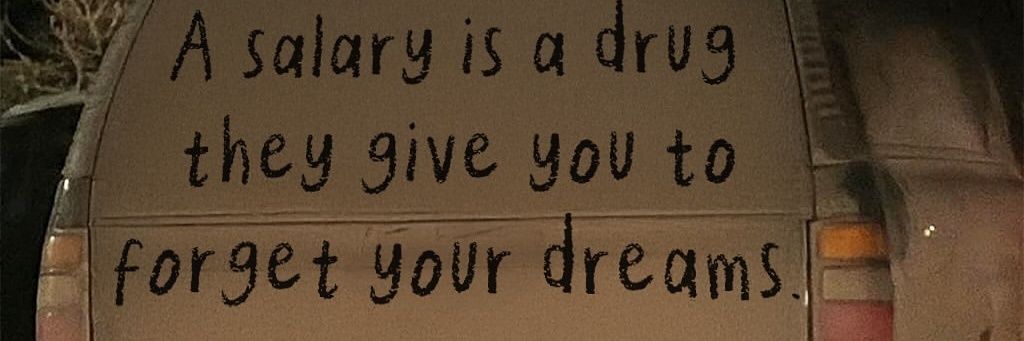 A salary is a drug
they give you to
forget your dreams.